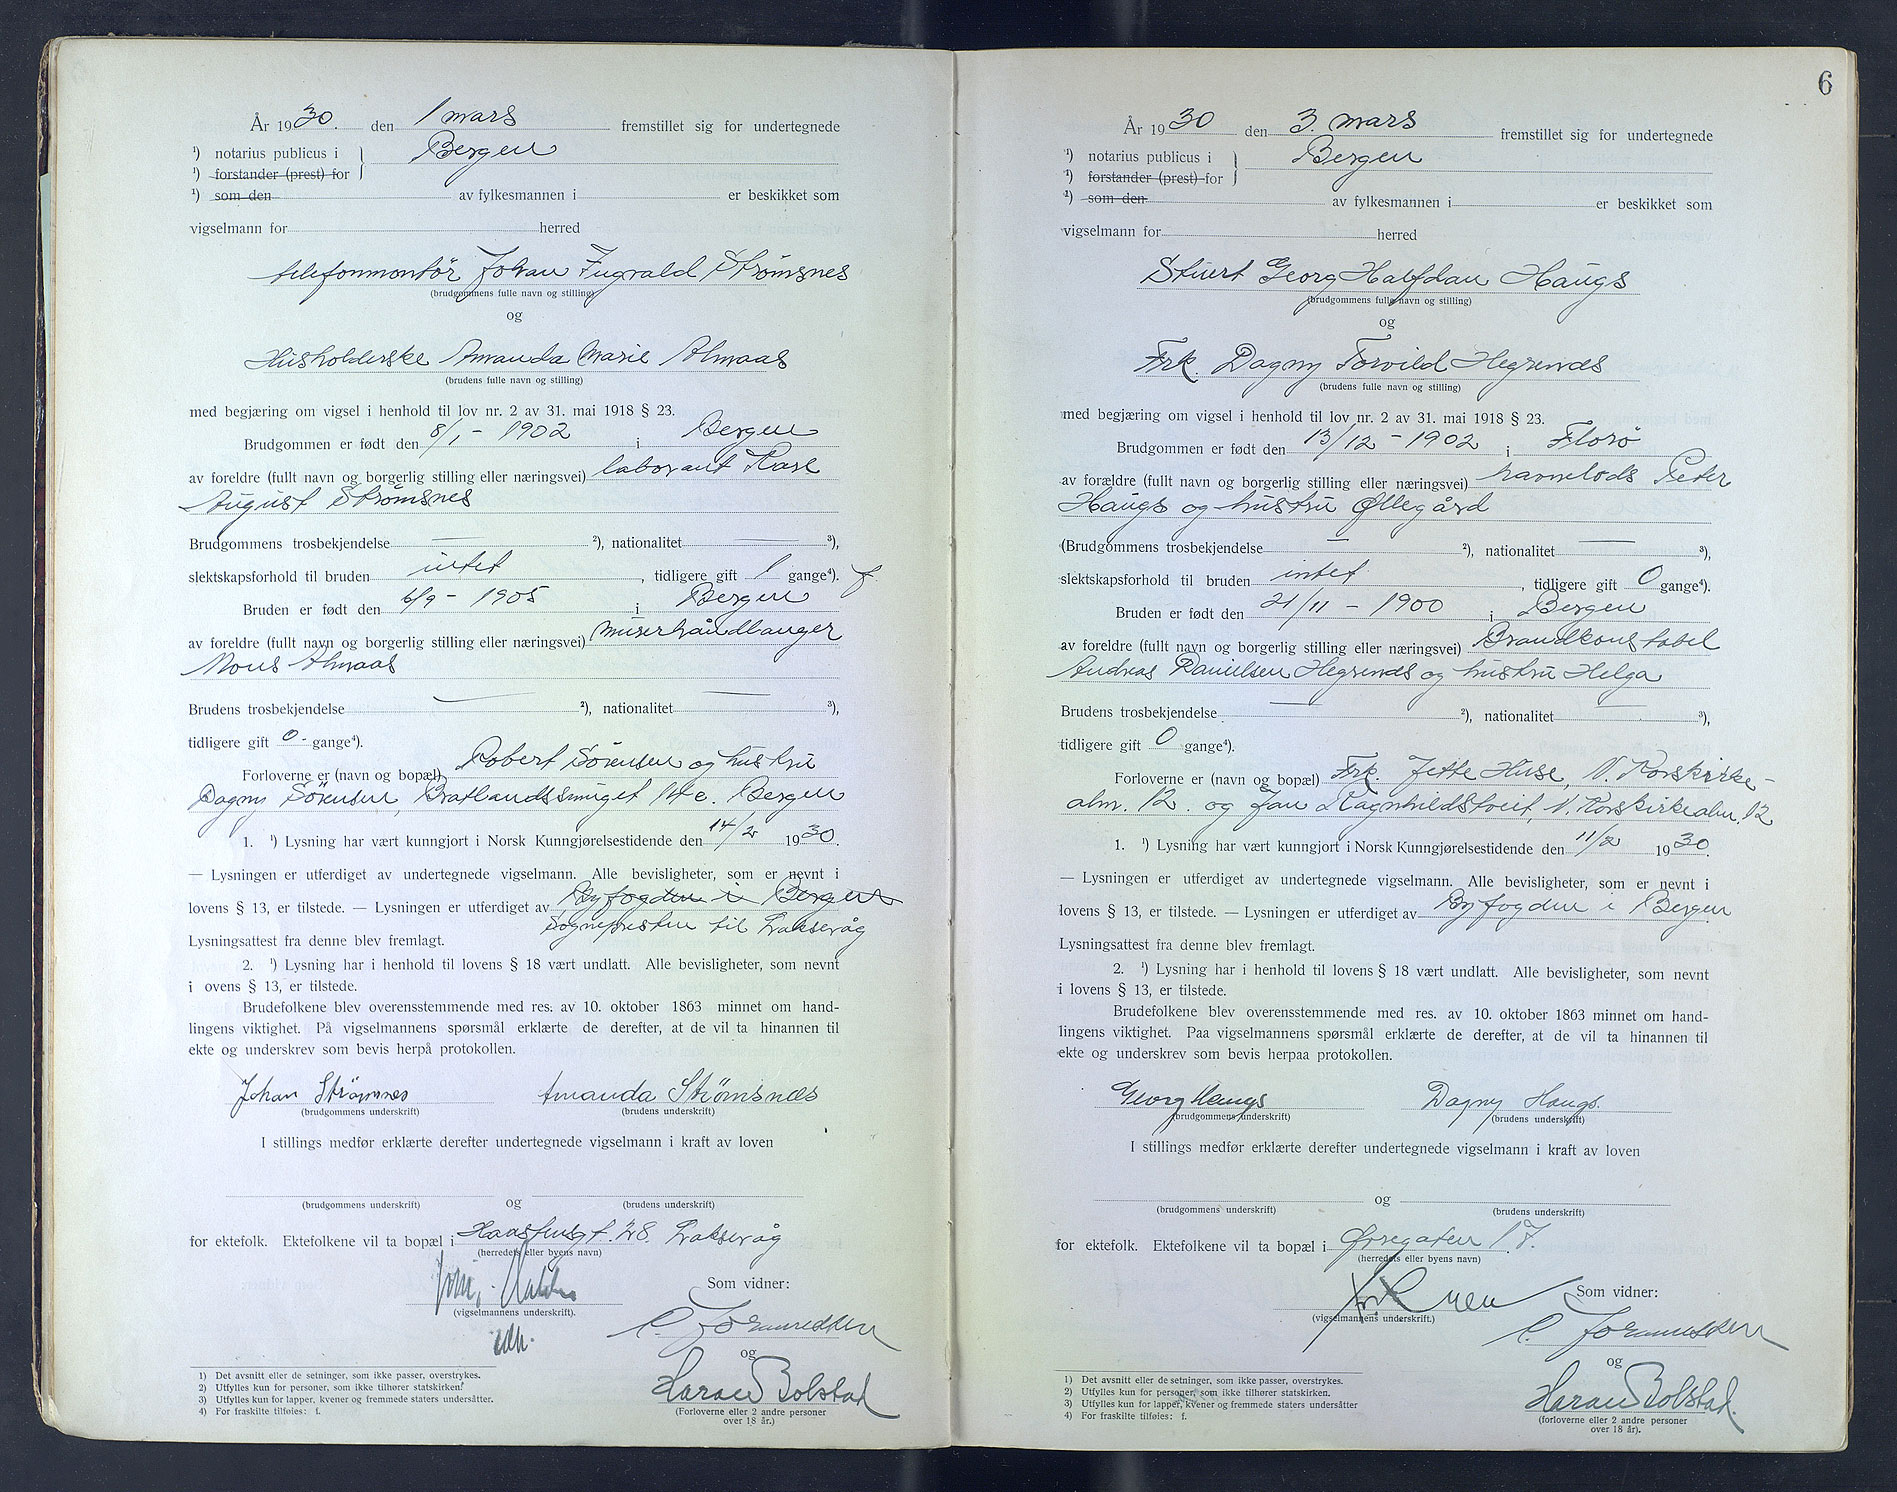 År 1930. den 1 mars fremstillet sig for undertegnede
¹) notarius publicus i } Bergen
¹) forstander (prest) for
¹) som den av fylkesmannen i er beskikket som
vigselmann for herred
telefonmontör Johan Ingvald Strømsnes
(brudgommens fulle navn og stilling)
og
Husholderske Amanda Marie Almaas
(brudens fulle navn og stilling)
med begjæring om vigsel i henhold til lov nr. 2 av 31. mai 1918 § 23.
Brudgommen er født den 8/1 - 1902 i Bergen
av foreldre (fullt navn og borgerlig stilling eller næringsvei) laborant Karl
August Strømsnes
Brudgommens trosbekjendelse — ²), nationalitet — ³),
slektskapsforhold til bruden intet, tidligere gift 1 gange⁴). f.
Bruden er født den 6/9 - 1905 i Bergen
av foreldre (fullt navn og borgerlig stilling eller næringsvei) murerhåndlanger
Mons Almaas
Brudens trosbekjendelse — ²), nationalitet — ³),
tidligere gift 0 - gange⁴).
Forloverne er (navn og bopæl) Robert Sörensen og hustru
Dagny Sörensen, Bratlandssmuget 14 c. Bergen
1. ¹) Lysning har vært kunngjort i Norsk Kunngjørelsestidende den 14/2 1930.
— Lysningen er utferdiget av undertegnede vigselmann. Alle bevisligheter, som er nevnt i
lovens § 13, er tilstede. — Lysningen er utferdiget av Byfogden i Bergen
Sogneprësten til Laksevåg
Lysningsattest fra denne blev fremlagt.
2. ¹) Lysning har i henhold til lovens § 18 vært undlatt. Alle bevisligheter, som nevnt
i ovens § 13, er tilstede.
Brudefolkene blev overensstemmende med res. av 10. oktober 1863 minnet om hand-
lingens viktighet. På vigselmannens spørsmål erklærte de derefter, at de vil ta hinannen til
ekte og underskrev som bevis herpå protokollen.
Johan Strömsnes Amanda Strømsnæs
(brudgommens underskrift) (brudens underskrift)
I stillings medfør erklærte derefter undertegnede vigselmann i kraft av loven
og
(brudgommens underskrift) (brudens underskrift)
for ektefolk. Ektefolkene vil ta bopæl i 28. Laksevåg
(herredets eller byens navn)
Som vidner:
(vigselmannens underskrift).
og
Haran Bolstad
(Forloverne eller 2 andre personer
over 18 år.)
1) Det avsnitt eller de setninger, som ikke passer, overstrykes.
2) Utfylles kun for personer, som ikke tilhører statskirken.
3) Utfylles kun for lapper, kvener og fremmede staters undersåtter.
4) For fraskilte tilføies: f.
6
År 1930 den 3. mars fremstillet sig for undertegnede
¹) notarius publicus i } Bergen
¹) forstander (prest) for
¹) som den av fylkesmannen i er beskikket som
vigselmann for herred
Stuert Georg Halfdan Haugs
(brudgommens fulle navn og stilling)
og
Frk. Dagny Torvild Hegrenæs
(brudens fulle navn og stilling)
med begjæring om vigsel i henhold til lov nr. 2 av 31. mai 1918 § 23.
Brudgommen er født den 13/12 - 1902 i Florø
av forældre (fullt navn og borgerlig stilling eller næringsvei) havnelods Peter
Haugs og hustru Øllegård
(Brudgommens trosbekjendelse — ²), nationalitet — ³),
slektskapsforhold til bruden intet, tidligere gift 0 gange⁴).
Bruden er født den 21/11 - 1900 i Bergen
av foreldre (fullt navn og borgerlig stilling eller næringsvei) Brandkonstabel
Andreas Danielsen Hegrenæs og hustru Helga
Brudens trosbekjendelse — ²), nationalitet — ³),
tidligere gift 0 gange⁴).
Forloverne er (navn og bopæl) Frk. Jette Huse, N. Korskirke-
alm. 12. og Jan Ragnhildstveit, N. Korskirkealm. 12
1. ¹) Lysning har vært kunngjort i Norsk Kunngjørelsestidende den 11/2 1930.
— Lysningen er utferdiget av undertegnede vigselmann. Alle bevisligheter, som er nevnt i
lovens § 13, er tilstede. — Lysningen er utferdiget av Byfogden i Bergen
Lysningsattest fra denne blev fremlagt.
2. ¹) Lysning har i henhold til lovens § 18 vært undlatt. Alle bevisligheter, som nevnt
i lovens § 13, er tilstede.
Brudefolkene blev overensstemmende med res. av 10. oktober 1863 minnet om hand-
lingens viktighet. Paa vigselmannens spørsmål erklærte de derefter, at de vil ta hinannen til
ekte og underskrev som bevis herpaa protokollen.
Georg Haugs Dagny Haugs.
(brudgommens underskrift) (brudens underskrift)
I stillings medfør erklærte derefter undertegnede vigselmann i kraft av loven
og
(brudgommens underskrift) (brudens underskrift)
for ektefolk. Ektefolkene vil ta bopæl i Øvregaten 17.
(herredets eller byens navn)
Som vidner:
(vigselmannens underskrift.)
og
Haran Bolstad.
(forloverne eller 2 andre personer
over 18 år).
1) Det avsnitt eller de setninger, som ikke passer, overstrykes.
2) Utfylles kun for personer, som ikke tilhører statskirken.
3) Utfylles kun for lapper, kvener og fremmede staters undersåtter
4) For fraskilte tilføies: f.